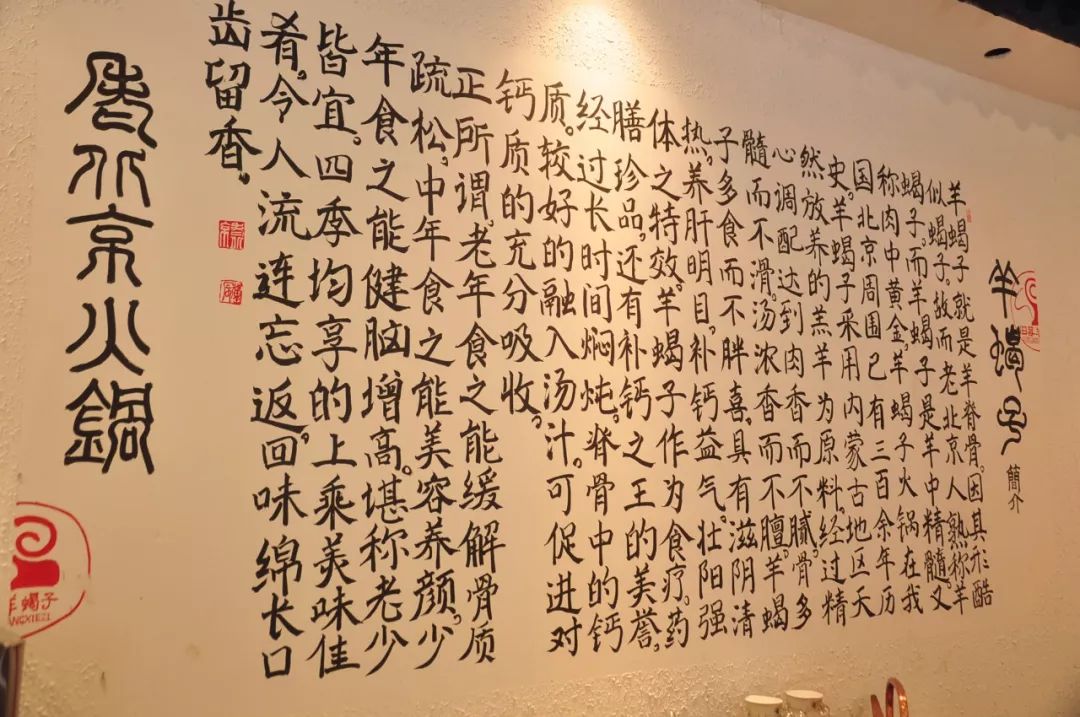 羊蝎子
簡介
羊蝎子就是羊脊骨。因其形酷
似蝎子。故而老北京人熟称羊
蝎子。而羊蝎子是羊中精髓。又
称肉中黄金,羊蝎子火锅在我
国北京周围已有三百余年历
史。羊蝎子采用内蒙古地区天
然放养的羔羊为原料。经过精
心调配达到肉香而不腻。骨多
髓而不滑。汤浓香而不膻。羊蝎
子多食而不胖喜。具有滋阴清
热。养肝明目,补钙益气。壮阳强
体之特效。羊蝎子作为食疗。药
膳珍品,还有补钙之王的美誉。
经过长时间焖炖。脊骨中的钙
质。较好的融入汤汁。可促进对
钙质的充分吸收。
正所谓。老年食之能缓解骨质
疏松。中年食之能美容养颜。少
年食之能健脑增高。堪称老少
皆宜。四季均享的上乘美味佳
肴。令人流连忘返。回味绵长口
齿留香。
老北京火鍋
羊蝎子
NGXIEZI